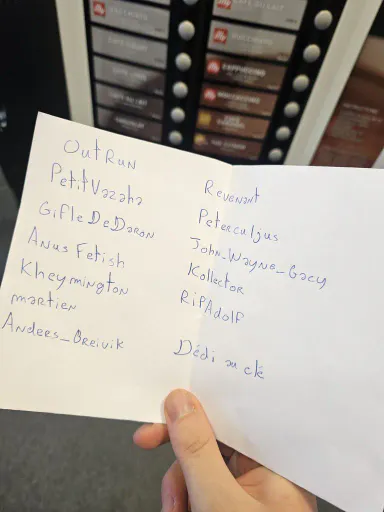 OutRun
PetitVazaha
GifleDeDaron
Anus Fetish
Kheymington
martien
Andees_Breivik
Revenant
Peterculjus
John_Wayne_Gacy
Kollector
RipAdolf
Dédi au ck
illy
CAPPUCCINO